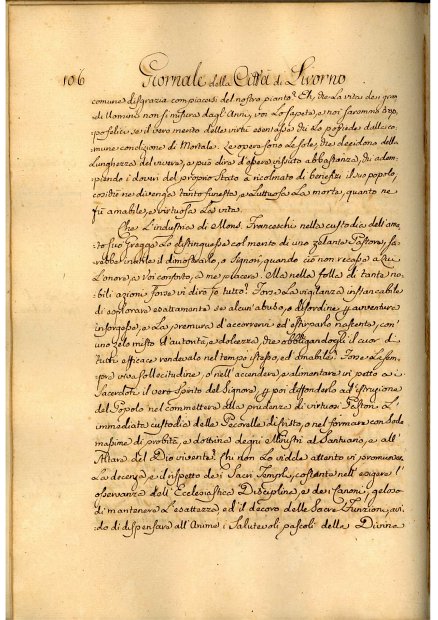 106 Giornale della Città di Livorno
comune disgrazia compiacesi del nostro pianto? Eh, che la vita de i gran
di Uomini non si misura dagli Anni, voi lo sapete, e noi saremmo
se il vero merito delle virtù esentasse chi lo possiede dalla co
mune condizione di Mortale. Le opere sono le sole, che decidono della
lunghezza del vivere, e può dirsi d'aver vissuto abbastanza, chi adem
piendo i doveri del proprio Stato à ricolmato di benefizi il suo popolo,
così che ne divenga tanto funesta, e luttuosa la morte, quanto ne
fù amabile, e virtuosa la vita.
Che l'industria di Mons. Franceschi nella custodia dell'ama
to suo Gregge lo distinguesse col merito di uno zelante Pastore, sa
rebbe inutile il dimostrarlo, o Signori, quando ciò non recasse a Lui
l'onore, a voi conforto, a me piacere. Ma nella folla di tante no
bili azioni forse vi dirò Io tutto? Forse la vigilanza instancabile
di esplorare esattamente se alcun'abuso, o disordine per avventura
insorgesse, e la premura d'accorrervi ed estirparlo nascente, con
uno zelo misto d'autorità, e dolcezza, che obbligandogli il cuor di
tutti efficace rendevalo nel tempo istesso, ed amabile? Forse la sem
pre viva sollecitudine, o nell'accendere, e alimentare in petto a i
Sacerdoti il vero Spirito del Signore per poi diffonderlo ad istruzione
del Popolo nel commettere alla prudenza di virtuosi Pastori l'
immediata custodia delle Pecorelle di Cristo, o nel formare con sode
massime di probità, e dottrina degni Ministri al Santuario, e all'
Altare del Dio vivente? Chi non lo vidde attento in promuovere
la decenza, e il rispetto de i Sacri Templi, costante nell'esigere l'
osservanza dell'Ecclesiastica Disciplina, e de i Canoni, geloso
di mantenere l'esattezza ed il decoro delle Sacre Funzioni, avi
do di dispensare all'Anime i salutevoli pascoli della Divina